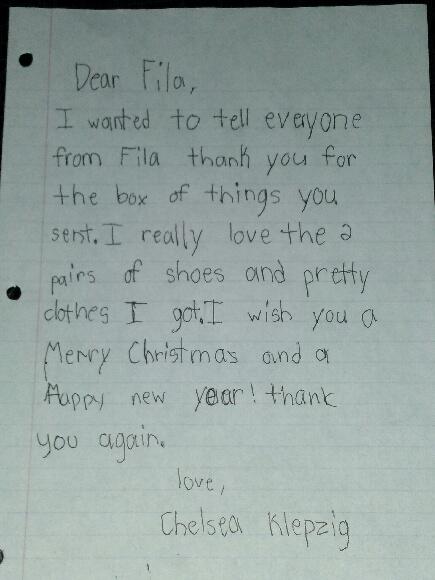 Dear Fila,
I wanted to tell everyone
from Fila thank you for
the box of things you
sent. I really love the 2
pairs of shoes and pretty
clothes I got. I wish you a
Merry Christmas and a
Happy new year! thank
you again.
love,
Chelsea Klepzig